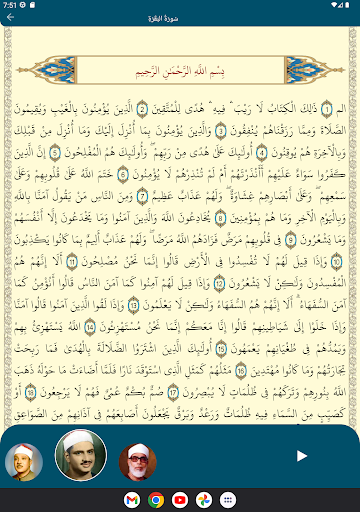 7:51
سُورَةُ البَقَرَةِ
بِسْمِ اللَّهِ الرَّحْمَٰنِ الرَّحِيمِ
الم 1 ذَٰلِكَ الْكِتَابُ لَا رَيْبَ ۛ فِيهِ ۛ هُدًى لِلْمُتَّقِينَ 2 الَّذِينَ يُؤْمِنُونَ بِالْغَيْبِ وَيُقِيمُونَ
الصَّلَاةَ وَمِمَّا رَزَقْنَاهُمْ يُنْفِقُونَ 3 وَالَّذِينَ يُؤْمِنُونَ بِمَا أُنْزِلَ إِلَيْكَ وَمَا أُنْزِلَ مِنْ قَبْلِكَ
وَبِالْآخِرَةِ هُمْ يُوقِنُونَ 4 أُولَٰئِكَ عَلَىٰ هُدًى مِنْ رَبِّهِمْ ۖ وَأُولَٰئِكَ هُمُ الْمُفْلِحُونَ 5 إِنَّ الَّذِينَ
كَفَرُوا سَوَاءٌ عَلَيْهِمْ أَأَنْذَرْتَهُمْ أَمْ لَمْ تُنْذِرْهُمْ لَا يُؤْمِنُونَ 6 خَتَمَ اللَّهُ عَلَىٰ قُلُوبِهِمْ وَعَلَىٰ
سَمْعِهِمْ ۖ وَعَلَىٰ أَبْصَارِهِمْ غِشَاوَةٌ ۖ وَلَهُمْ عَذَابٌ عَظِيمٌ 7 وَمِنَ النَّاسِ مَنْ يَقُولُ آمَنَّا بِاللَّهِ
وَبِالْيَوْمِ الْآخِرِ وَمَا هُمْ بِمُؤْمِنِينَ 8 يُخَادِعُونَ اللَّهَ وَالَّذِينَ آمَنُوا وَمَا يَخْدَعُونَ إِلَّا أَنْفُسَهُمْ
وَمَا يَشْعُرُونَ 9 فِي قُلُوبِهِمْ مَرَضٌ فَزَادَهُمُ اللَّهُ مَرَضًا ۖ وَلَهُمْ عَذَابٌ أَلِيمٌ بِمَا كَانُوا يَكْذِبُونَ
10 وَإِذَا قِيلَ لَهُمْ لَا تُفْسِدُوا فِي الْأَرْضِ قَالُوا إِنَّمَا نَحْنُ مُصْلِحُونَ 11 أَلَا إِنَّهُمْ هُمُ
الْمُفْسِدُونَ وَلَٰكِنْ لَا يَشْعُرُونَ 12 وَإِذَا قِيلَ لَهُمْ آمِنُوا كَمَا آمَنَ النَّاسُ قَالُوا أَنُؤْمِنُ كَمَا
آمَنَ السُّفَهَاءُ ۗ أَلَا إِنَّهُمْ هُمُ السُّفَهَاءُ وَلَٰكِنْ لَا يَعْلَمُونَ 13 وَإِذَا لَقُوا الَّذِينَ آمَنُوا قَالُوا آمَنَّا
وَإِذَا خَلَوْا إِلَىٰ شَيَاطِينِهِمْ قَالُوا إِنَّا مَعَكُمْ إِنَّمَا نَحْنُ مُسْتَهْزِئُونَ 14 اللَّهُ يَسْتَهْزِئُ بِهِمْ
وَيَمُدُّهُمْ فِي طُغْيَانِهِمْ يَعْمَهُونَ 15 أُولَٰئِكَ الَّذِينَ اشْتَرَوُا الضَّلَالَةَ بِالْهُدَىٰ فَمَا رَبِحَتْ
تِجَارَتُهُمْ وَمَا كَانُوا مُهْتَدِينَ 16 مَثَلُهُمْ كَمَثَلِ الَّذِي اسْتَوْقَدَ نَارًا فَلَمَّا أَضَاءَتْ مَا حَوْلَهُ ذَهَبَ
اللَّهُ بِنُورِهِمْ وَتَرَكَهُمْ فِي ظُلُمَاتٍ لَا يُبْصِرُونَ 17 صُمٌّ بُكْمٌ عُمْيٌ فَهُمْ لَا يَرْجِعُونَ 18 أَوْ
كَصَيِّبٍ مِنَ السَّمَاءِ فِيهِ ظُلُمَاتٌ وَرَعْدٌ وَبَرْقٌ يَجْعَلُونَ أَصَابِعَهُمْ فِي آذَانِهِمْ مِنَ الصَّوَاعِقِ